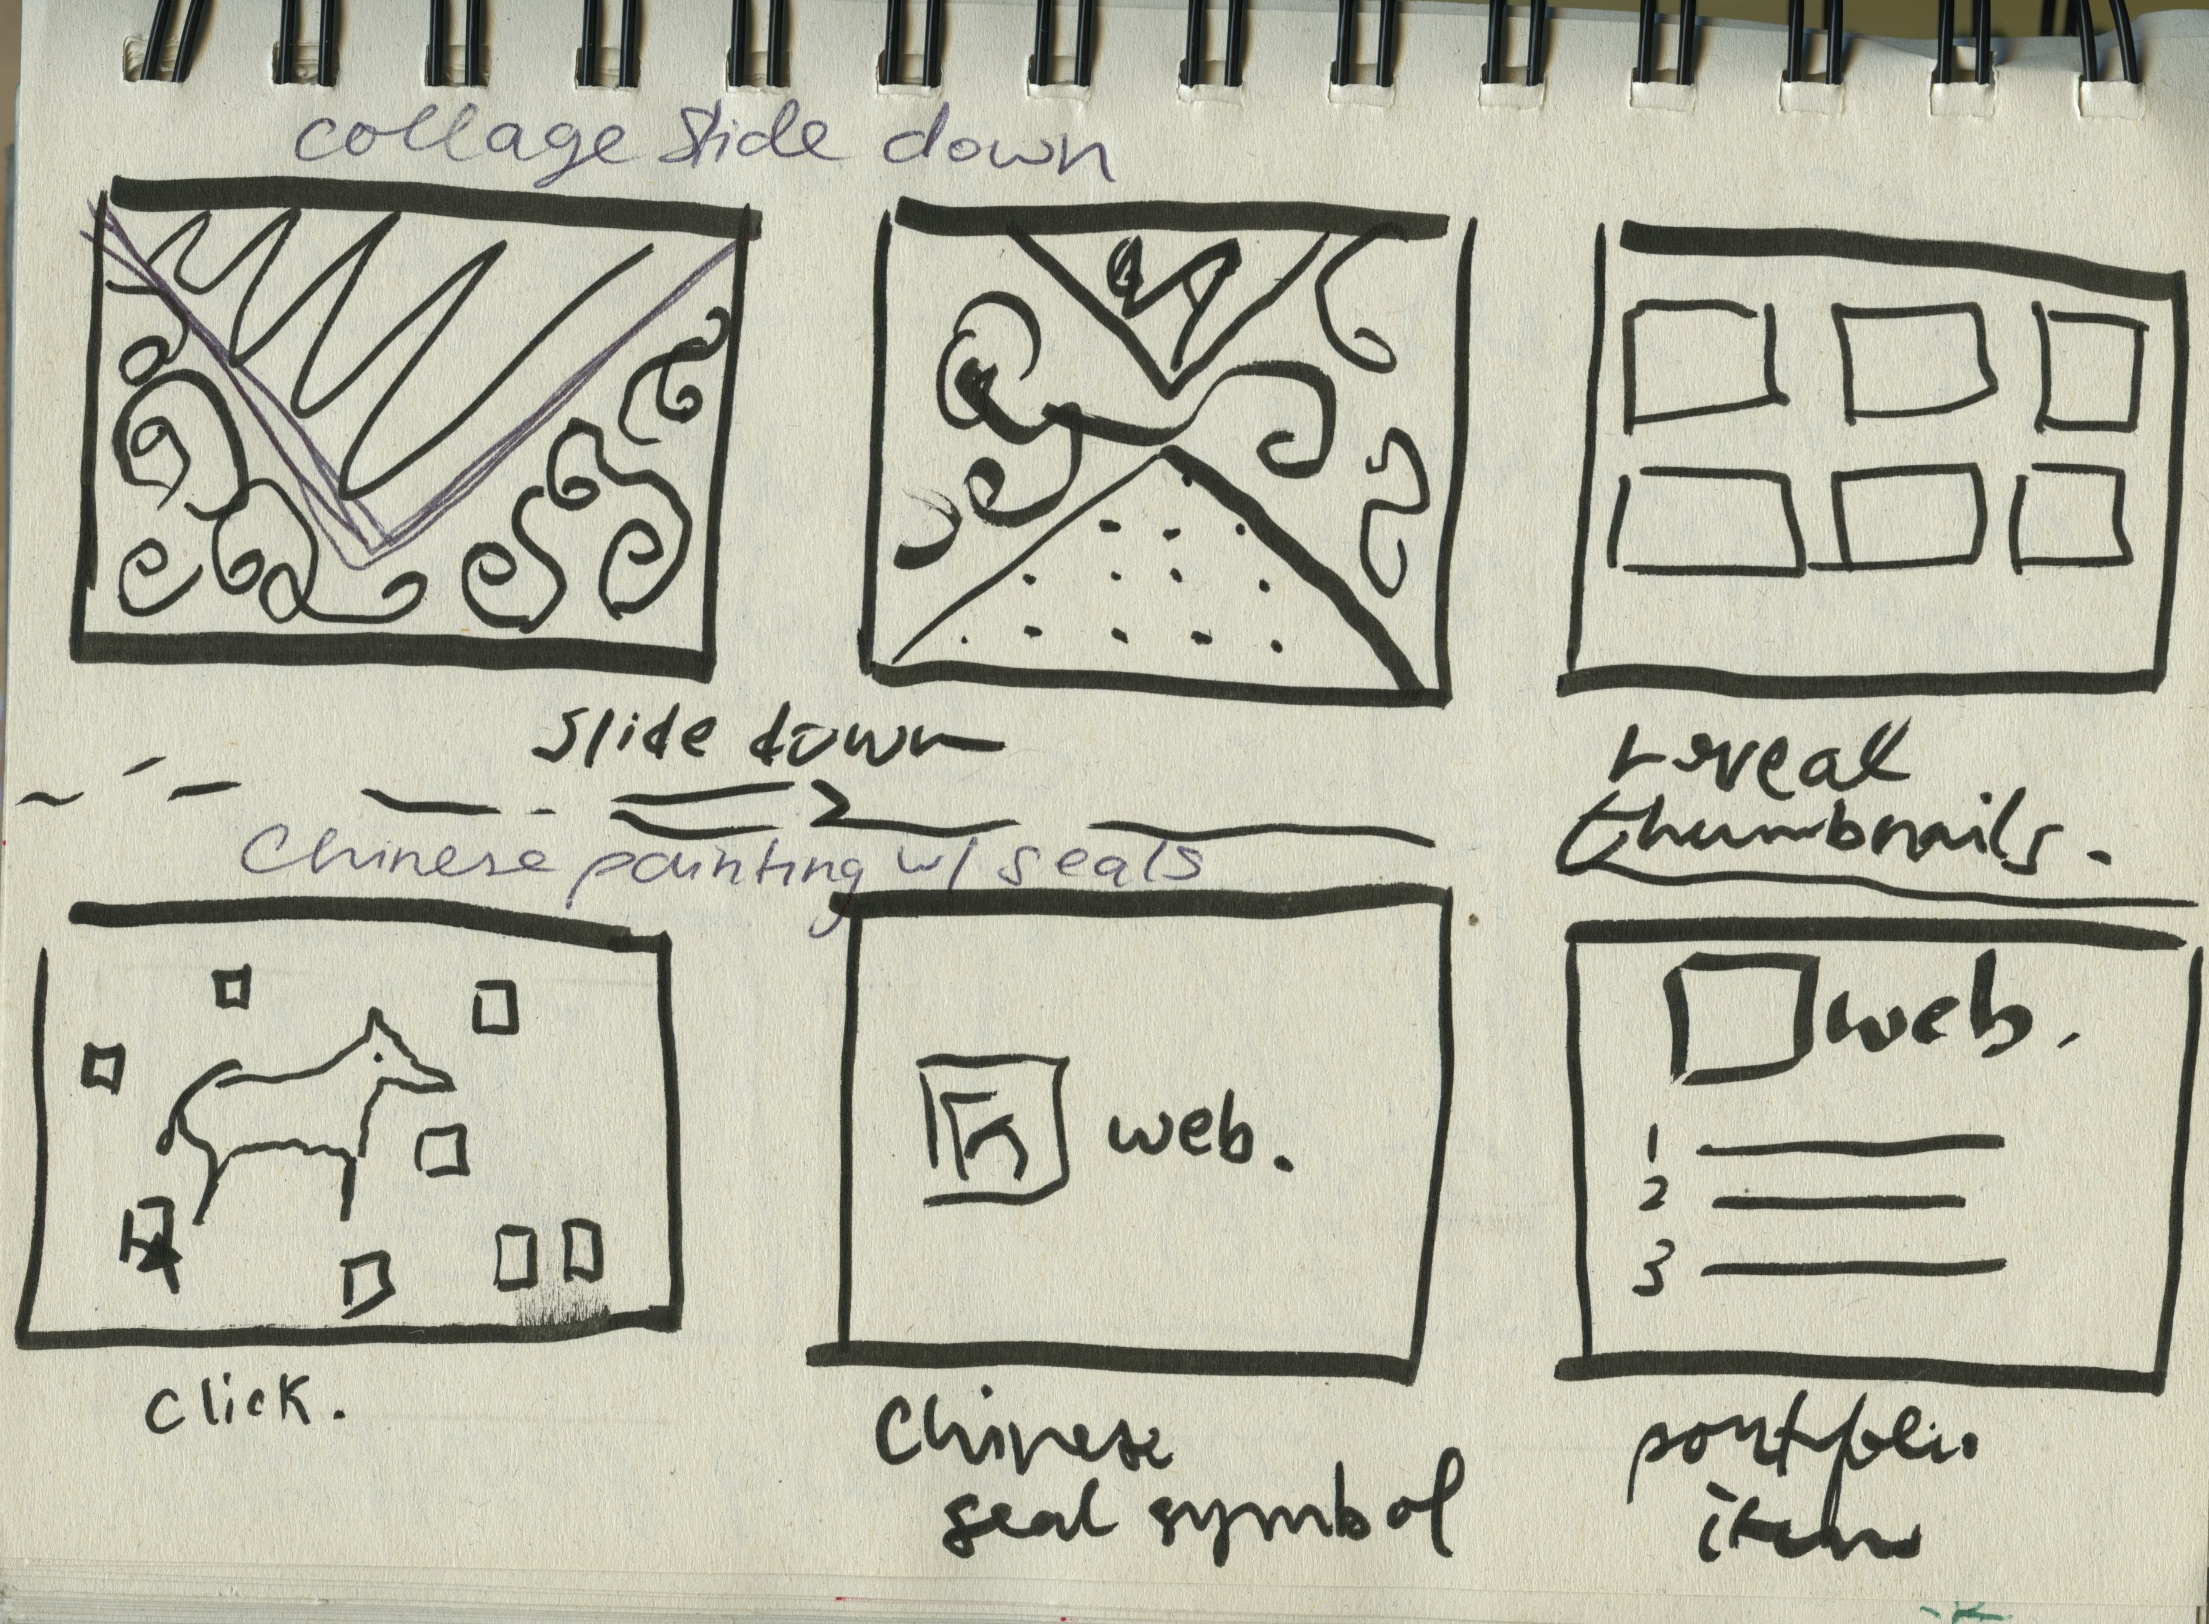 collage slide down
slide down
reveal
thumbnails.
Chinese painting w/ seals
web.
web.
1
2
3
click.
Chinese
seal symbol
portfolio
item